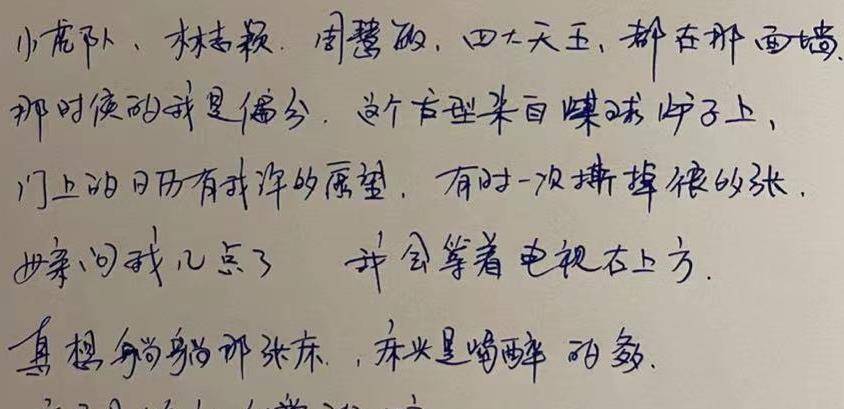 小虎队、林志颖、周慧敏、四大天王、都在那面墙.
那时候的我是偏分.这个发型来自煤球炉子上,
门上的日历有我许的愿望.有时一次撕掉很多张.
母亲问我几点了 我会等着电视右上方.
真想躺躺那张床.,床头是喝醉的爹.